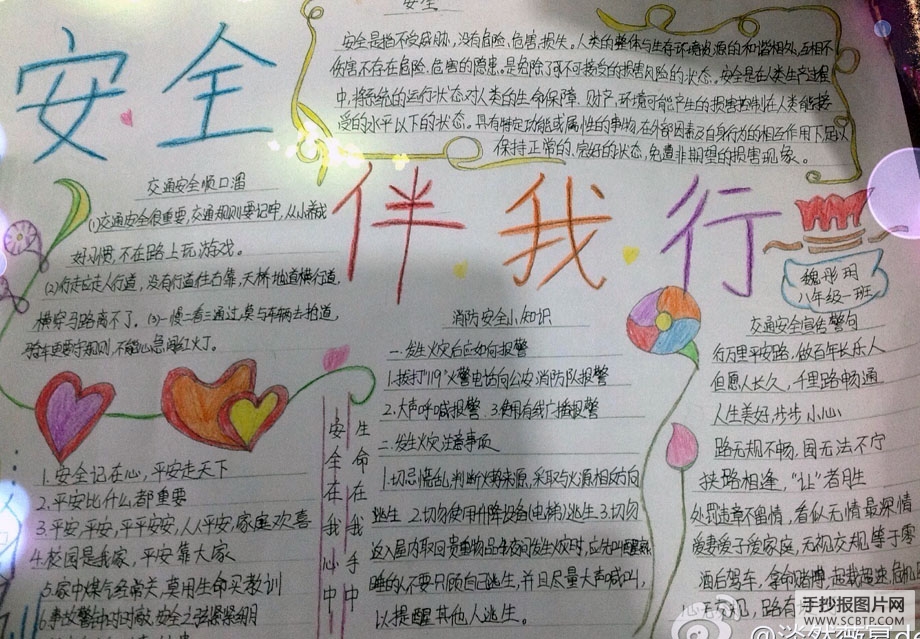 安全
安全
安全是指不受威胁,没有危险、危害、损失。人类的整体与生存环境资源的和谐相处,互相不
伤害不存在危险、危害的隐患。是免除了不可接受的损害风险的状态。安全是在人类生产过程
中,将系统的运行状态对人类的生命保障、财产、环境可能产生的损害控制在人类能接
受的水平以下的状态。具有特定功能或属性的事物,在外部因素及自身行为的相互作用下足以
保持正常的、完好的状态,免遭非期望的损害现象。
伴我行
魏彤玥
八年级一班
交通安全顺口溜
(1)交通安全很重要,交通规则要记牢,从小养成
好习惯,不在路上玩游戏。
(2)行走应走人行道,没有行道往右靠,天桥地道横行道,
横穿马路离不了。(3)一慢二看三通过,莫与车辆去抢道,
骑车更要守规则,不能心急闯红灯。
1.安全记在心,平安走天下
2.平安比什么都重要
3.平安,平安,平平安安,人人平安,家庭欢喜
4.校园是我家,平安靠大家
5.家中煤气经常关,莫用生命买教训
6.事故警钟时时敲,安全之弦紧紧绷
安全在我心中
生命在我手中
消防安全小知识
一.发生火灾后应如何报警
1.拨打"119"火警电话向公安消防队报警
2.大声呼喊报警 3.使用有线广播报警
二.发生火灾注意事项
1.切忌慌乱,判断火势来源,采取与火源相反方向
逃生 2.切勿使用升降设备(电梯)逃生 3.切勿
返入屋内取回贵重物品 4.夜间发生火灾时,应先叫醒熟
睡的人不要只顾自己逃生,并且尽量大声喊叫,
以提醒其他人逃生。
交通安全宣传警句
行万里平安路,做百年长乐人
但愿人长久,千里路畅通
人生美好,步步小心
路无规不畅,国无法不宁
狭路相逢,"让"者胜
处罚违章不留情,看似无情最深情
爱妻爱子爱家庭,无视交规等于零
酒后驾车,拿命赌博,超载超速,危机
手抄报图片网
WWW.SCBTP.COM